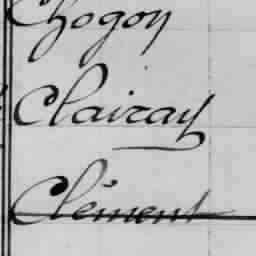 Chogon
Clairay
Clément